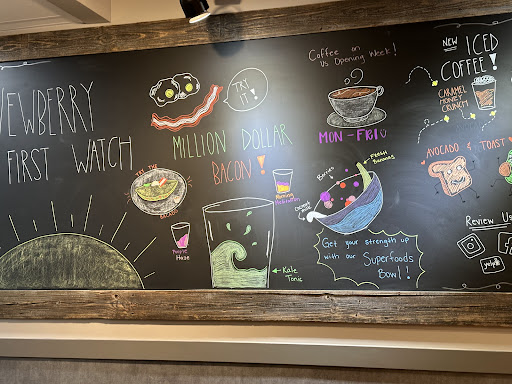 NEWBERRY
FIRST WATCH
TRY
IT!
MILLION DOLLAR
BACON!
TRY THE
Purple
Haze
Morning
Meditation
Kale
Tonic
Coffee on
Us Opening Week!
MON-FRI
Berries
Fresh
Bananas
Get your strength up
with our Superfoods
Bowl!
NEW ICED
COFFEE!
CARAMEL
HONEY
CRUNCH
AVOCADO & TOAST
Review Us
yelp